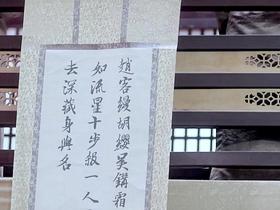 趙客縵胡纓吳鉤霜
如流星十步殺一人
去深藏身與名